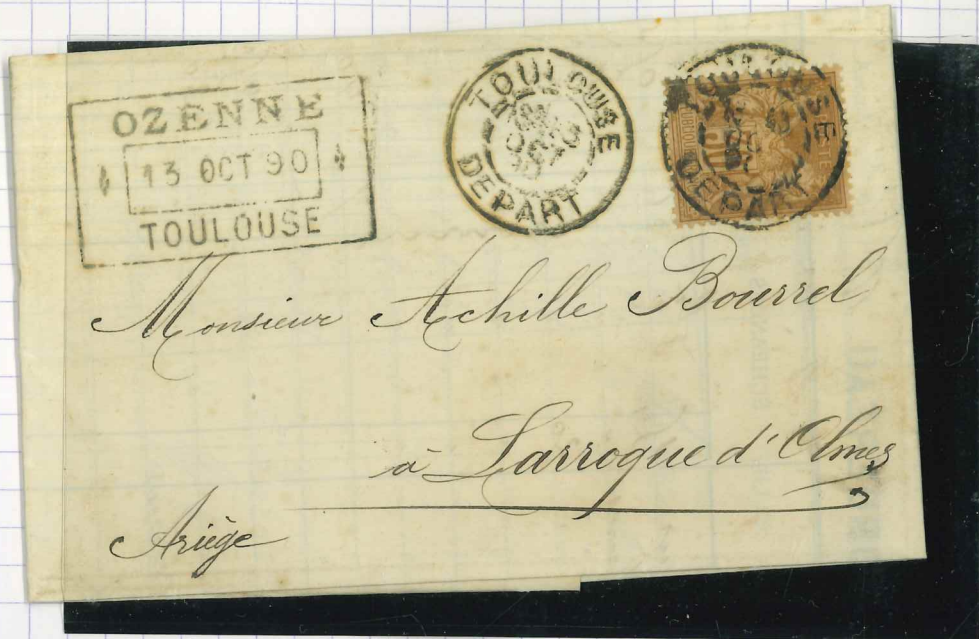 OZENNE
13 OCT 90
TOULOUSE
TOULOUSE
DEPART
TOULOUSE
DEPART
Monsieur Achille Bourrel
à Larroque d'Olmes
Ariège